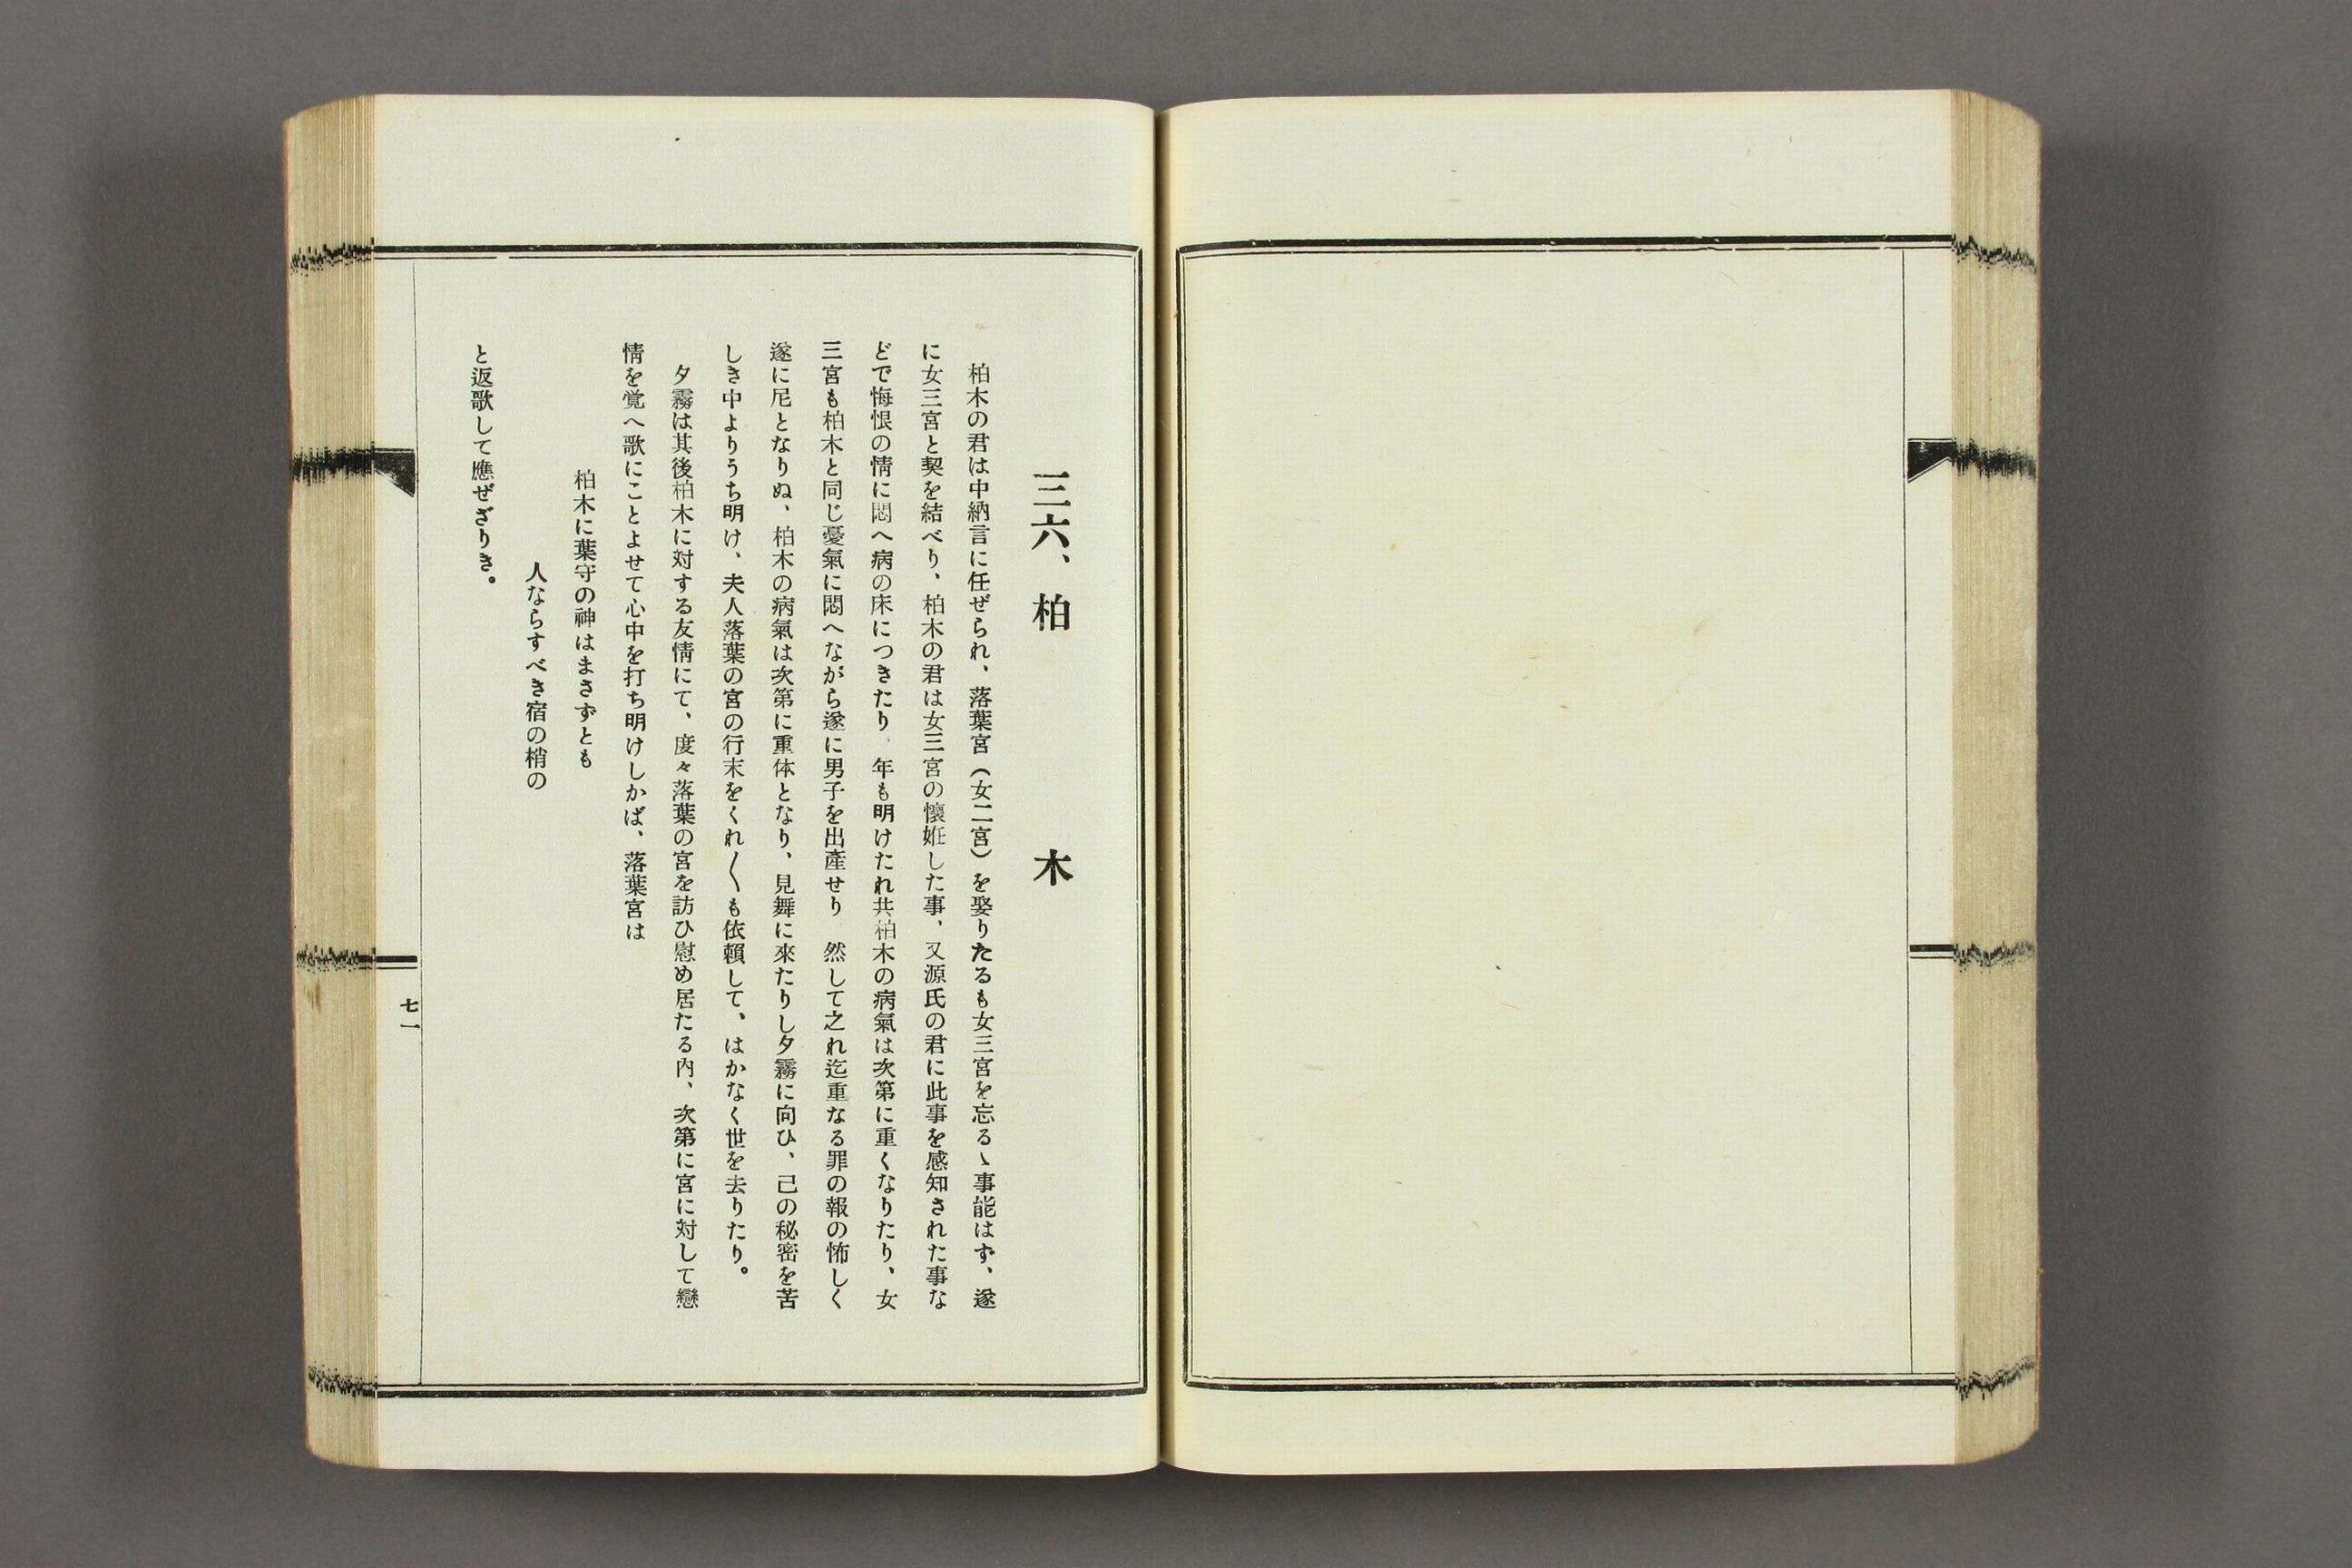 三六、柏木
柏木の君は中納言に任ぜられ、落葉宮（女二宮）を娶りたるも女三宮を忘るゝ事能はず、遂
に女三宮と契を結べり、柏木の君は女三宮の懷姙した事、又源氏の君に此事を感知された事な
どで悔恨の情に悶へ病の床につきたり、年も明けたれ共柏木の病氣は次第に重くなりたり、女
三宮も柏木と同じ憂氣に悶へながら遂に男子を出產せり 然して之れ迄重なる罪の報の怖しく
遂に尼となりぬ、柏木の病氣は次第に重体となり、見舞に來たりし夕霧に向ひ、己の秘密を苦
しき中よりうち明け、夫人落葉の宮の行末をくれ〱も依賴して、はかなく世を去りたり。
夕霧は其後柏木に対する友情にて、度々落葉の宮を訪ひ慰め居たる内、次第に宮に対して戀
情を覚へ歌にことよせて心中を打ち明けしかば、落葉宮は
柏木に葉守の神はまさずとも
人ならすべき宿の梢の
と返歌して應ぜざりき。
七一